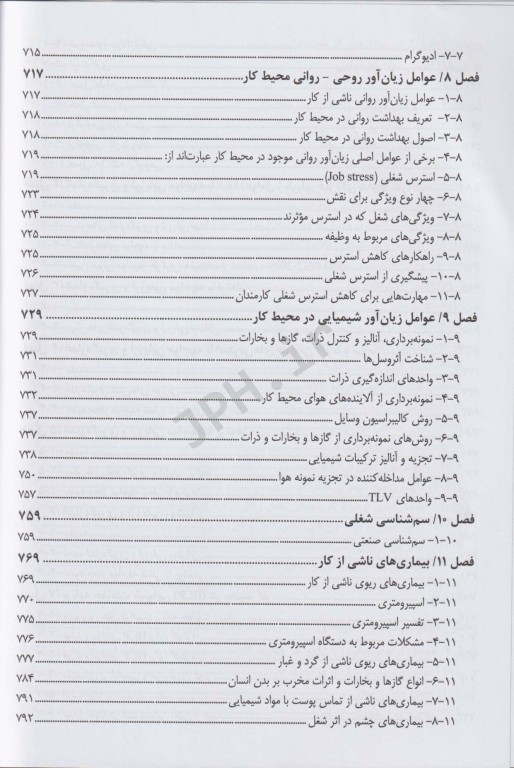 ۷-۷- ادیوگرام ........ ۷۱۵
فصل ۸/ عوامل زیان‌آور روحی – روانی محیط کار ........ ۷۱۷
۸-۱- عوامل زیان‌آور روانی ناشی از کار ........ ۷۱۷
۸-۲- تعریف بهداشت روانی در محیط کار ........ ۷۱۸
۸-۳- اصول بهداشت روانی در محیط کار ........ ۷۱۸
۸-۴- برخی از عوامل اصلی زیان‌آور روانی موجود در محیط کار عبارت‌اند از: ........ ۷۱۹
۸-۵- استرس شغلی (Job stress) ........ ۷۱۹
۸-۶- چهار نوع ویژگی برای نقش ........ ۷۲۳
۸-۷- ویژگی‌های شغل که در استرس مؤثرند ........ ۷۲۴
۸-۸- ویژگی‌های مربوط به وظیفه ........ ۷۲۵
۸-۹- راهکارهای کاهش استرس ........ ۷۲۵
۸-۱۰- پیشگیری از استرس شغلی ........ ۷۲۶
۸-۱۱- مهارت‌هایی برای کاهش استرس شغلی کارمندان ........ ۷۲۷
فصل ۹/ عوامل زیان‌آور شیمیایی در محیط کار ........ ۷۲۹
۹-۱- نمونه‌برداری، آنالیز و کنترل ذرات، گازها و بخارات ........ ۷۲۹
۹-۲- شناخت آئروسل‌ها ........ ۷۳۱
۹-۳- واحدهای اندازه‌گیری ذرات ........ ۷۳۱
۹-۴- نمونه‌برداری از آلاینده‌های هوای محیط کار ........ ۷۳۲
۹-۵- روش کالیبراسیون وسایل ........ ۷۳۷
۹-۶- روش‌های نمونه‌برداری از گازها و بخارات و ذرات ........ ۷۳۷
۹-۷- تجزیه و آنالیز ترکیبات شیمیایی ........ ۷۳۸
۹-۸- عوامل مداخله‌کننده در تجزیه نمونه هوا ........ ۷۵۰
۹-۹- واحدهای TLV ........ ۷۵۷
فصل ۱۰/ سم‌شناسی شغلی ........ ۷۵۹
۱۰-۱- سم‌شناسی صنعتی ........ ۷۵۹
فصل ۱۱/ بیماری‌های ناشی از کار ........ ۷۶۹
۱۱-۱- بیماری‌های ریوی ناشی از کار ........ ۷۶۹
۱۱-۲- اسپیرومتری ........ ۷۷۰
۱۱-۳- تفسیر اسپیرومتری ........ ۷۷۵
۱۱-۴- مشکلات مربوط به دستگاه اسپیرومتری ........ ۷۷۶
۱۱-۵- بیماری‌های ریوی ناشی از گرد و غبار ........ ۷۷۷
۱۱-۶- انواع گازها و بخارات و اثرات مخرب بر بدن انسان ........ ۷۸۴
۱۱-۷- بیماری‌های ناشی از تماس پوست با مواد شیمیایی ........ ۷۹۱
۱۱-۸- بیماری‌های چشم در اثر شغل ........ ۷۹۲
JPH.ir